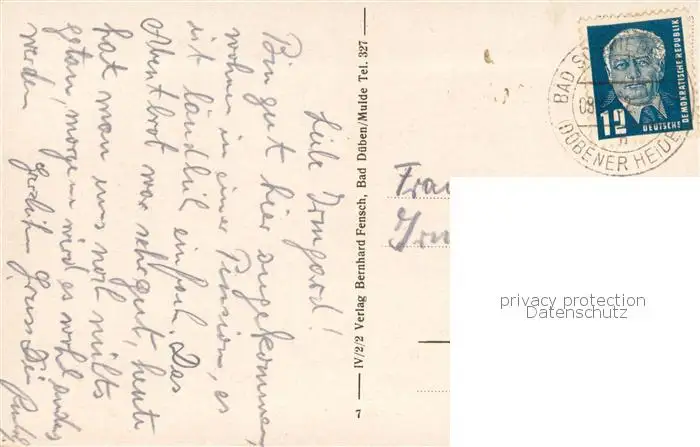 Liebe Irmgard!
Bin gut hier angekommen,
wohnen in einer Pension, es
ist ländlich einfach. Das
Abentbrot war sehr gut, heute
hat man uns noch nichts
getan, morgen wird es wohl anders
werden. Herzlichen Gruss Dein
IV/2/2 Verlag Bernhard Fensch, Bad Düben/Mulde Tel. 327
7
BAD
(DÜBENER HEIDE)
12
DEUTSCHE
DEMOKRATISCHE REPUBLIK
Frau
privacy protection
Datenschutz